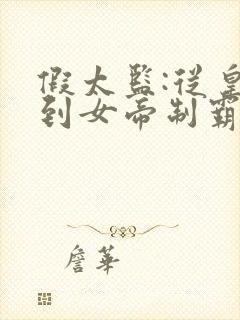 假太監:從皇
到女帝制霸
詹華